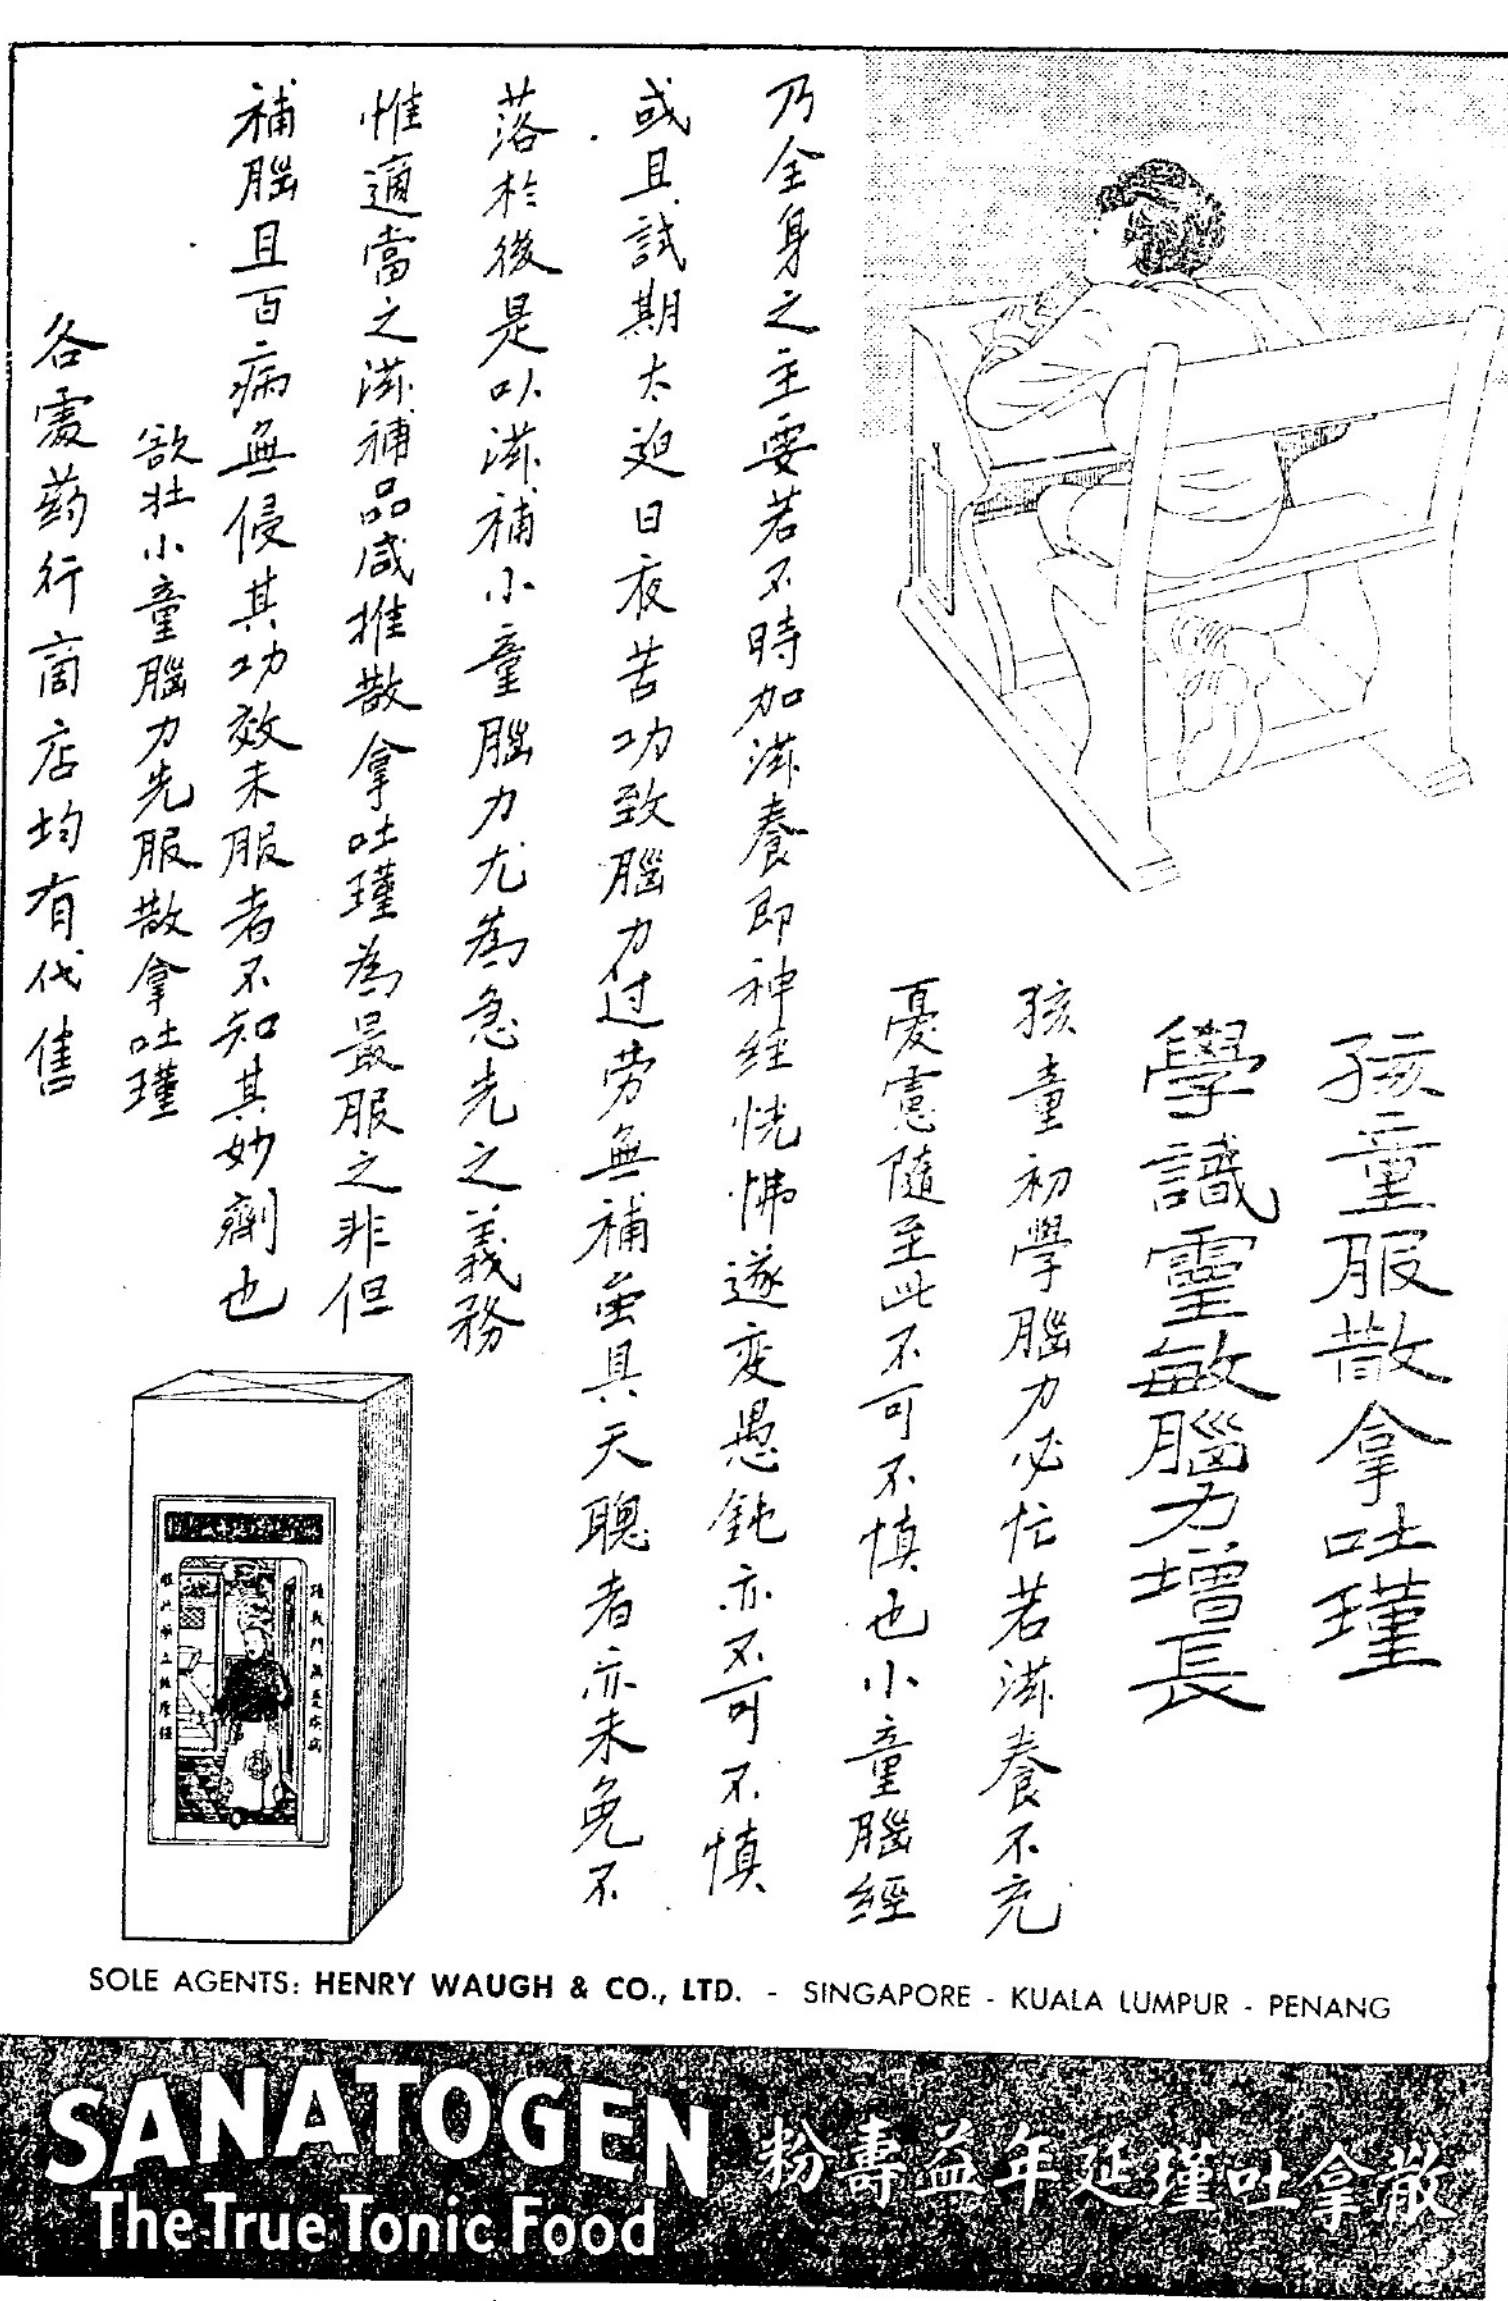 孩童服散拿吐瑾
學識靈敏腦力增長
孩童初學腦力必忙若滋養不充
憂慮隨至此不可不慎也小童腦經
乃全身之主要若不時加滋養即神经恍怫遂变愚鈍亦不可不慎
或且試期太迫日夜苦功致腦力过劳無補虽具天聰者亦未免不
落於後是以滋補小童腦力尤為急先之義務
惟適當之滋補品咸推散拿吐瑾為最服之非但
補腦且百病無侵其功效未服者不知其妙劑也
欲壯小童腦力先服散拿吐瑾
各處药行商店均有代售
SOLE AGENTS: HENRY WAUGH & CO., LTD. - SINGAPORE - KUALA LUMPUR - PENANG
SANATOGEN
The True Tonic Food
散拿吐瑾延年益壽粉